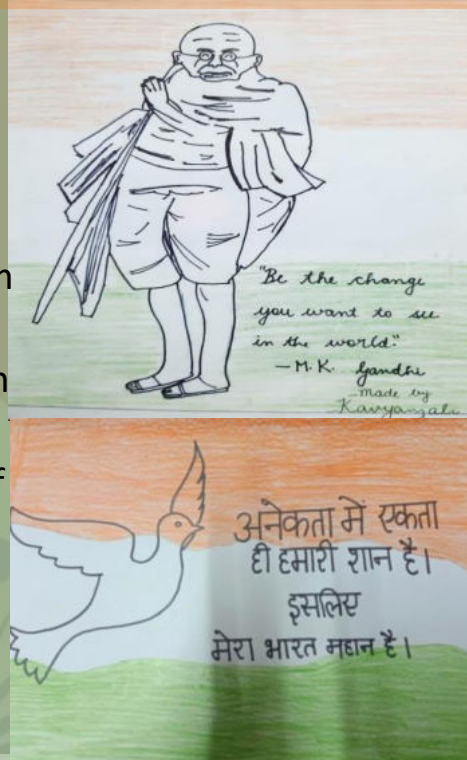 "Be the change
you want to see
in the world."
– M. K. Gandhi
made by
Kavyanzali
अनेकता में एकता
ही हमारी शान है।
इसलिए
मेरा भारत महान है।